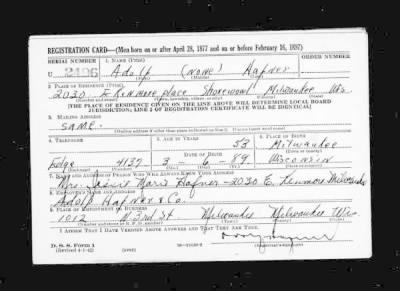 REGISTRATION CARD—(Men born on or after April 28, 1877 and on or before February 16, 1897)
SERIAL NUMBER 1. NAME (Print) ORDER NUMBER
U 2496 Adolf (none) Hafner
(First) (Middle) (Last)
2. PLACE OF RESIDENCE (Print)
2030 E Kenmore place Shorewood Milwaukee Wis.
(Number and street) (Town, township, village, or city) (County) (State)
[THE PLACE OF RESIDENCE GIVEN ON THE LINE ABOVE WILL DETERMINE LOCAL BOARD
JURISDICTION; LINE 2 OF REGISTRATION CERTIFICATE WILL BE IDENTICAL]
3. MAILING ADDRESS
same.
[Mailing address if other than place indicated on line 2. If same insert word same]
4. TELEPHONE 5. AGE IN YEARS 6. PLACE OF BIRTH
53 Milwaukee
DATE OF BIRTH (Town or county)
Edge. 4137 3 - 6 - 89 Wisconsin
(Exchange) (Number) (Mo.) (Day) (Yr.) (State or country)
7. NAME AND ADDRESS OF PERSON WHO WILL ALWAYS KNOW YOUR ADDRESS
Mrs. Marie Hafner - 2030 E. Kenmore Milwaukee
8. EMPLOYER'S NAME AND ADDRESS
Adolf Hafner & Co.
9. PLACE OF EMPLOYMENT OR BUSINESS
1012 N 3rd St Milwaukee Milwaukee Wis
(Number and street or R. F. D. number) (Town) (County) (State)
I AFFIRM THAT I HAVE VERIFIED ABOVE ANSWERS AND THAT THEY ARE TRUE.
D. S. S. Form 1
(Revised 4-1-42) (over) (Registrant's signature)